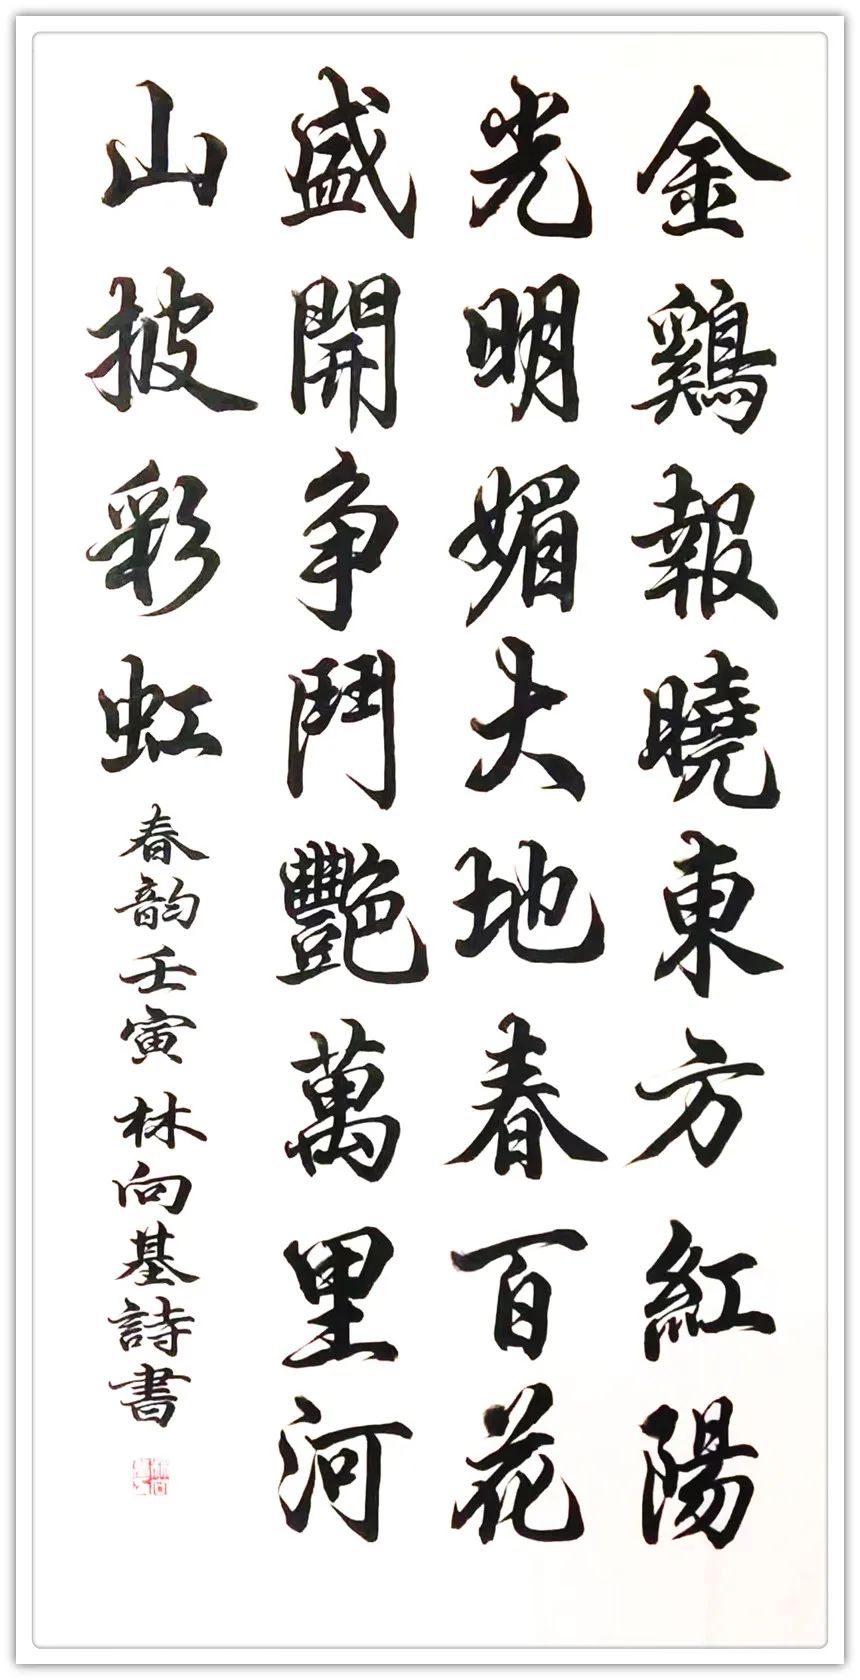 金鷄報曉東方紅陽
光明媚大地春百花
盛開争鬥艷萬里河
山披彩虹 春韵壬寅 林向基詩書